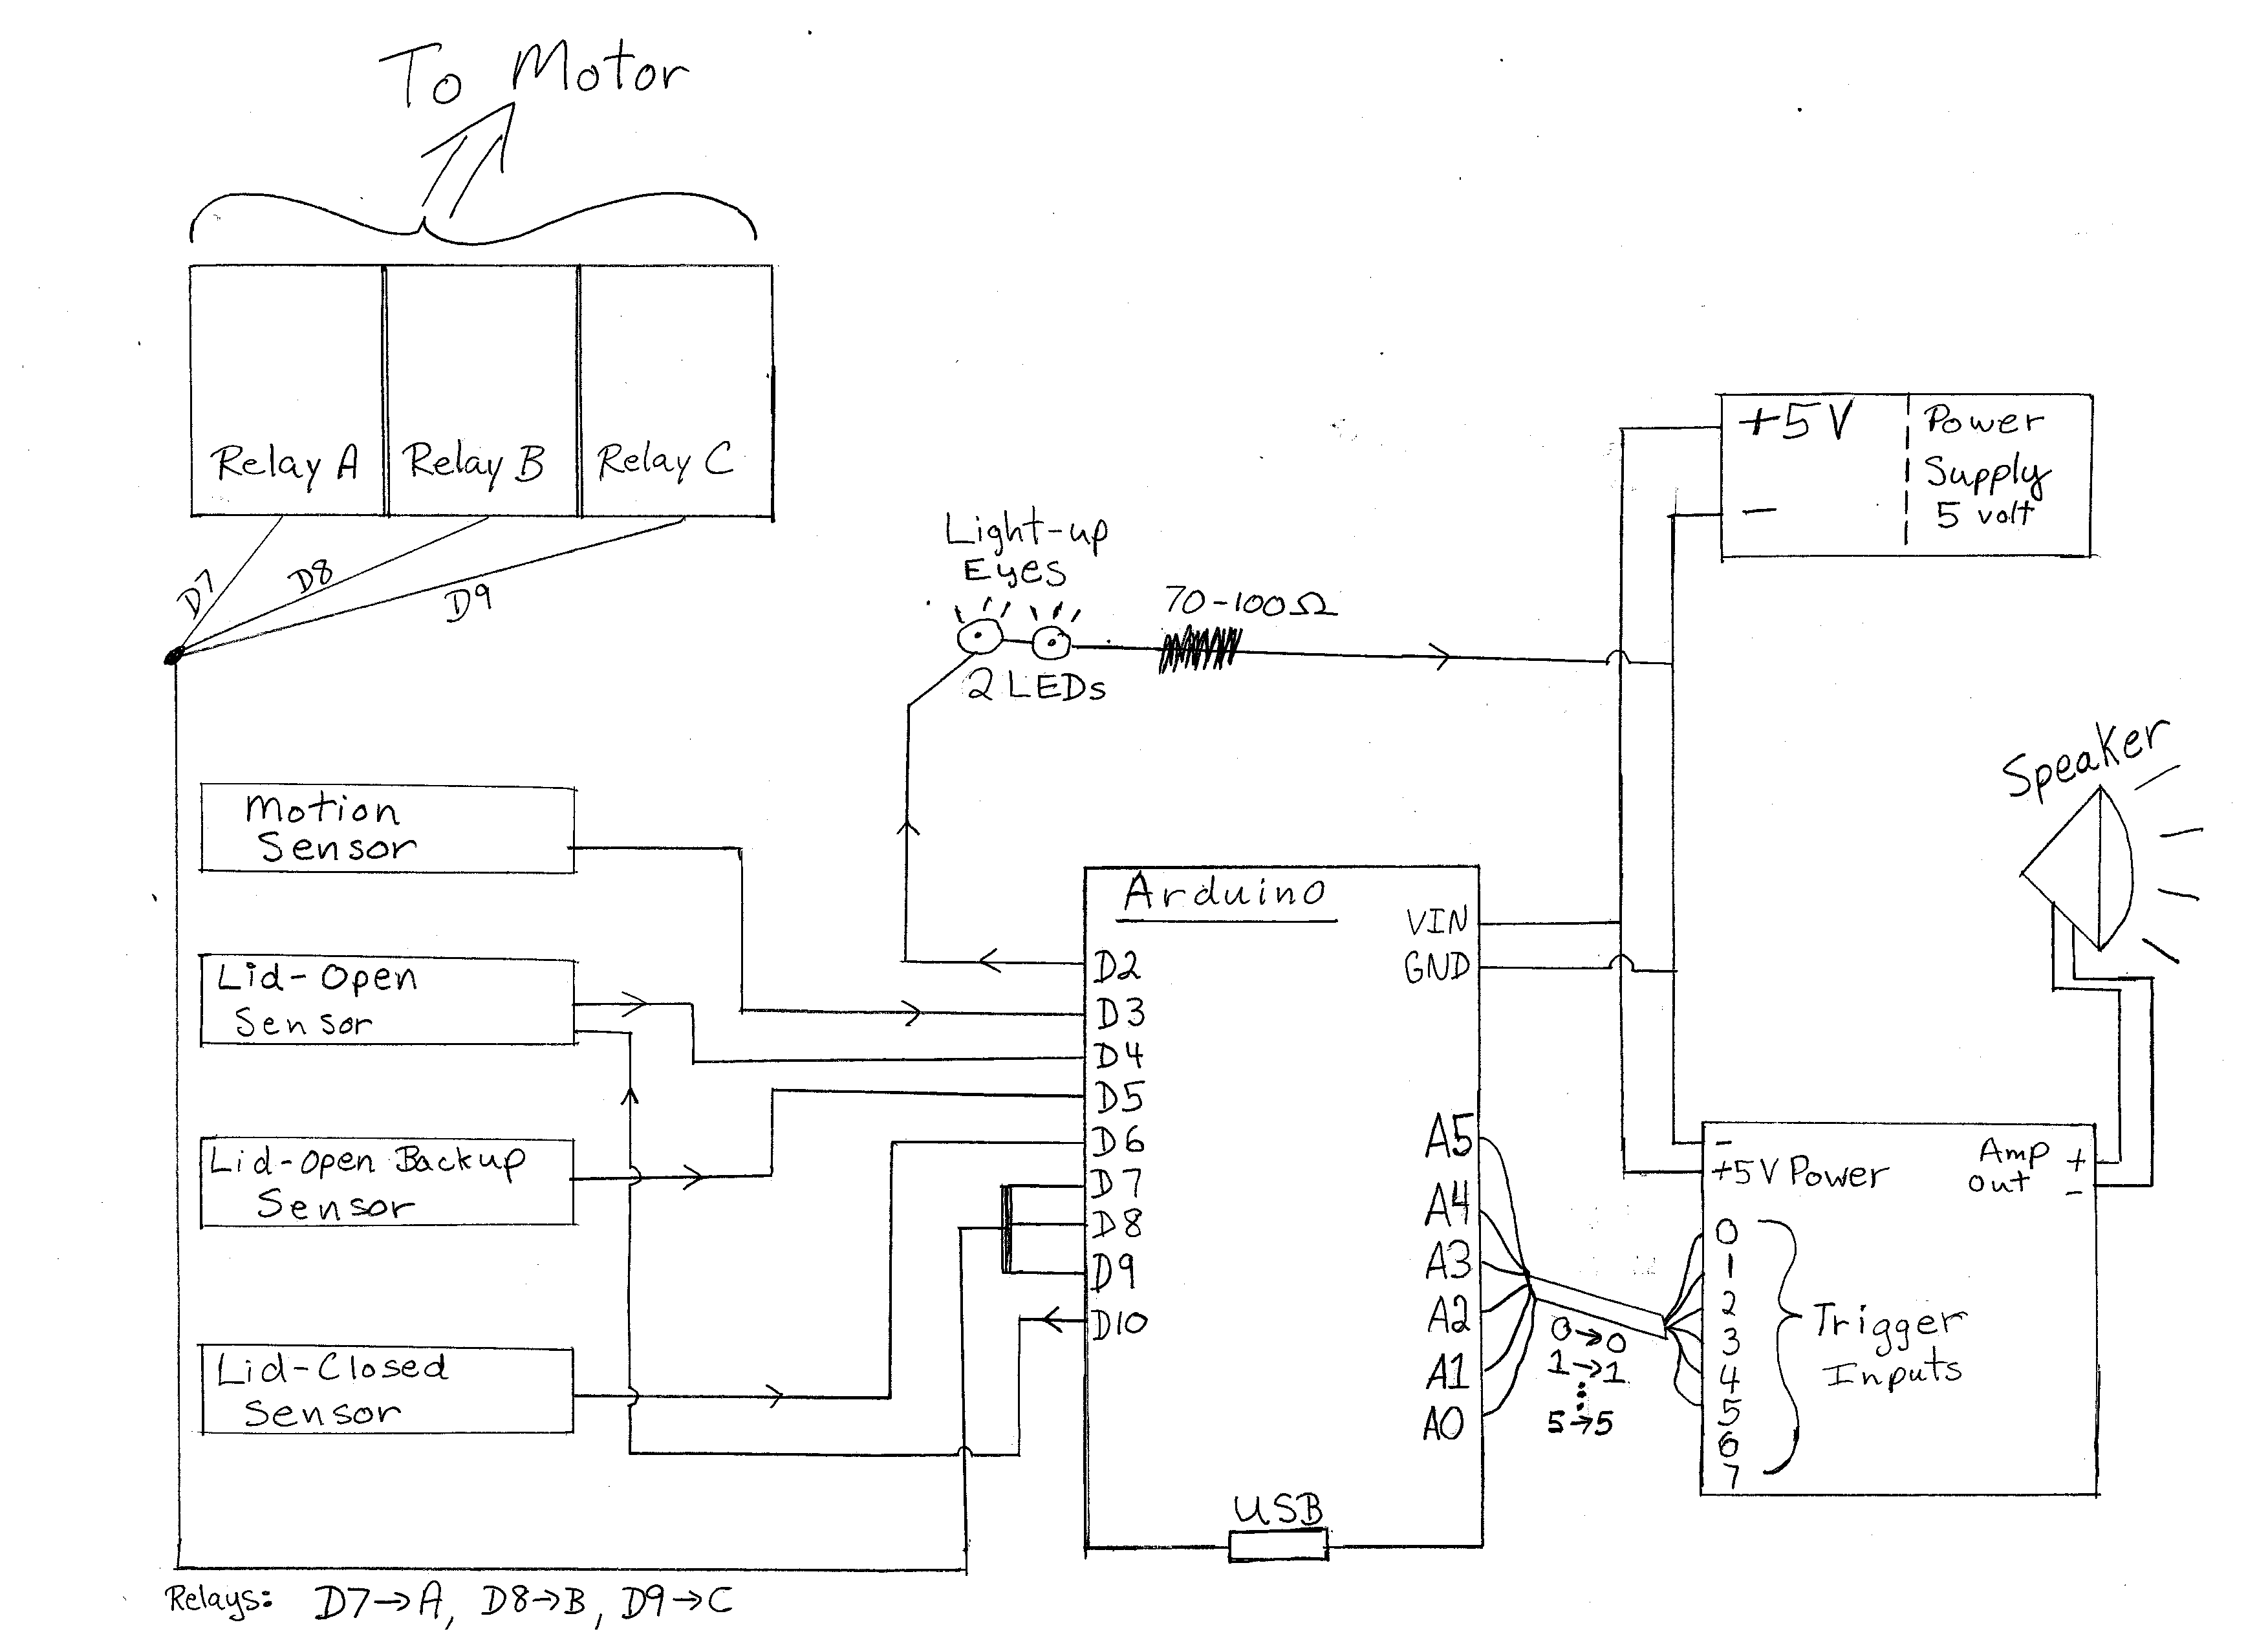 To Motor
Relay A
Relay B
Relay C
D7
D8
D9
Light-up
Eyes
2 LEDs
70-100Ω
+5V
-
Power
Supply
5 volt
Speaker
Motion
Sensor
Lid-Open
Sensor
Lid-Open Backup
Sensor
Lid-Closed
Sensor
Arduino
D2
D3
D4
D5
D6
D7
D8
D9
D10
VIN
GND
A5
A4
A3
A2
A1
A0
USB
0→0
1→1
⋮
5→5
-
+5V Power
Amp
out
+
-
0
1
2
3
4
5
6
7
Trigger
Inputs
Relays: D7→A, D8→B, D9→C